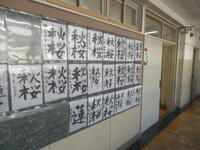 秋桜
秋桜
秋桜
秋桜
秋桜
秋桜
秋桜
秋桜
秋桜
秋桜
秋桜
秋桜
秋桜
蓮
秋桜
秋桜
秋桜
秋桜